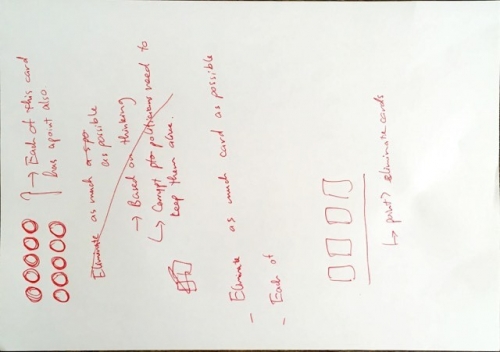 ? → Each of this card
has a point also
Eliminate as much as possible
→ Based on thinking
↳ Corrupt politicians need to
keep them alive.
- Eliminate as much card as possible
- Each of
↳ point? eliminate cards